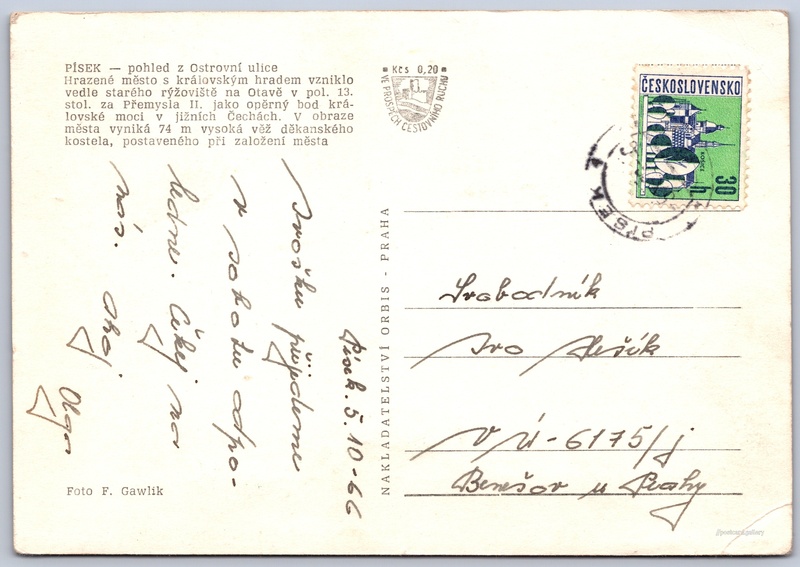 PÍSEK — pohled z Ostrovní ulice
Hrazené město s královským hradem vzniklo
vedle starého rýžoviště na Otavě v pol. 13.
stol. za Přemysla II. jako opěrný bod krá-
lovské moci v jižních Čechách. V obraze
města vyniká 74 m vysoká věž děkanského
kostela, postaveného při založení města
Kčs 0,20
VE PROSPĚCH CESTOVNÍHO RUCHU
ČESKOSLOVENSKO
30 h
PÍSEK 1
Písek. 5.10-66
Ivošku přijdeme
v sobotu odpo-
ledne. Čekej na
nás. Ahoj
Olga
NAKLADATELSTVÍ ORBIS - PRAHA
Svobodník
Ivo Nešík
VÚ-6175/j
Benešov u Prahy
Foto F. Gawlik